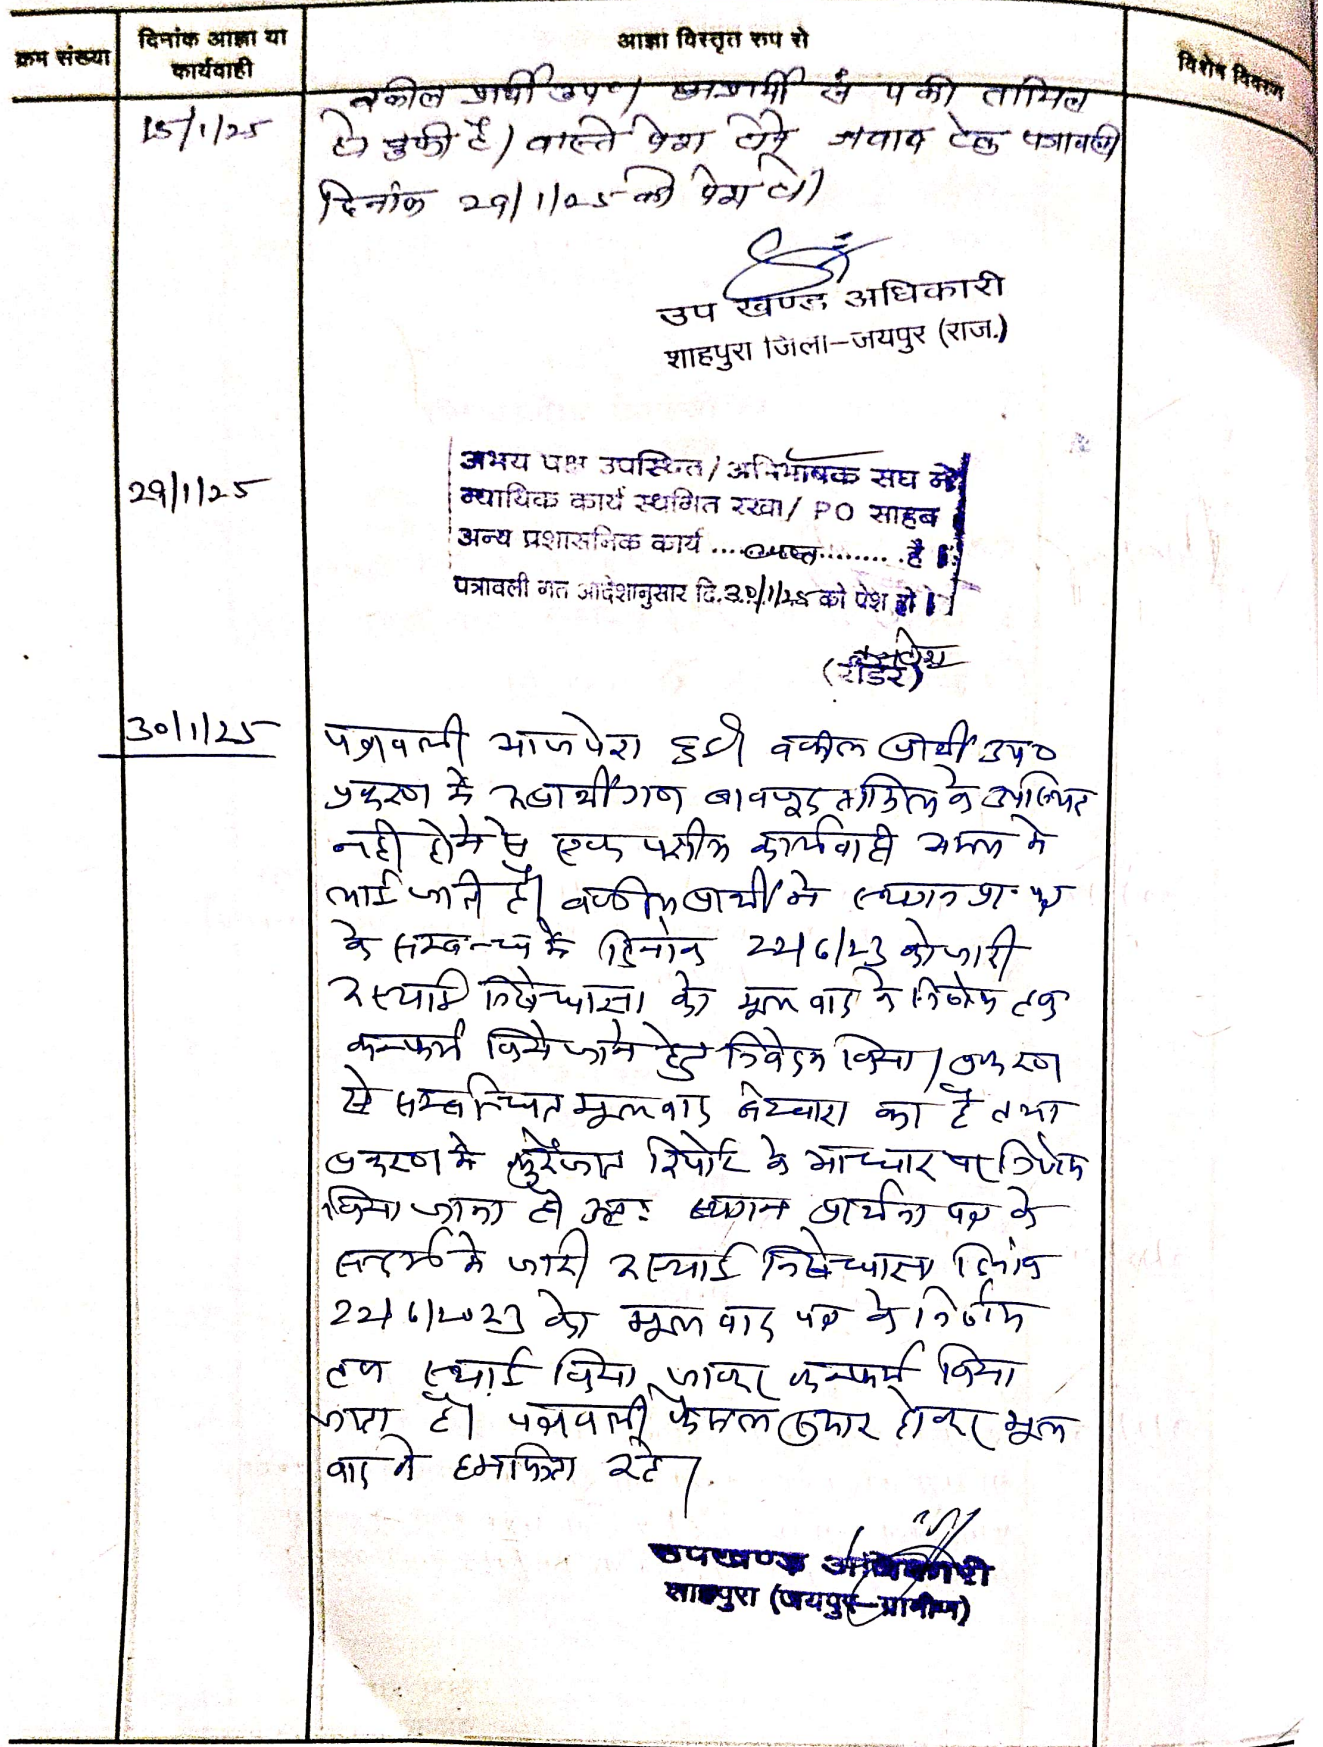 क्रम संख्या
दिनांक आज्ञा या
कार्यवाही
आज्ञा विस्तृत रुप से
विशेष विवरण
15/1/25
वकील प्रार्थी उप0/ अप्रार्थी सं की तामिल
हो चुकी है। वास्ते पेश होने जवाब हेतु पत्रावली
दिनांक 29/1/25 को पेश हो।
उप खण्ड अधिकारी
शाहपुरा जिला-जयपुर (राज.)
29/1/25
उभय पक्ष उपस्थित/अभिभाषक संघ ने
न्यायिक कार्य स्थगित रखा/ PO साहब
अन्य प्रशासनिक कार्य ........ व्यस्त ........ है।
पत्रावली गत आदेशानुसार दि.30/1/25 को पेश हो।
(रीडर)
30/1/25
पत्रावली आज पेश हुई। वकील प्रार्थी उप0
प्रकरण में अप्रार्थीगण बावजूद तामिल के उपस्थित
नही होने से एक पक्षीय कार्यवाही अमल मे
लाई जाती है। वकील प्रार्थी ने स्थगन प्रा. पत्र
के सम्बन्ध में दिनांक 22/6/23 को जारी
अस्थाई निषेधाज्ञा को मूल वाद के निर्णय तक
कन्फर्म किये जाने हेतु निवेदन किया। प्रकरण
से सम्बन्धित मूल वाद बंटवारा का है तथा
प्रकरण मे कुर्रेजात रिपोर्ट के आधार पर निर्णय
किया जाना है। अतः स्थगन प्रार्थना पत्र के
सन्दर्भ मे जारी अस्थाई निषेधाज्ञा दिनांक
22/6/2023 को मूल वाद पत्र के निर्णय
तक स्थाई किया जाकर कन्फर्म किया
जाता है। पत्रावली फैसल शुमार होकर मूल
वाद मे हमफिता रहे।
उपखण्ड अधिकारी
शाहपुरा (जयपुर-ग्रामीण)